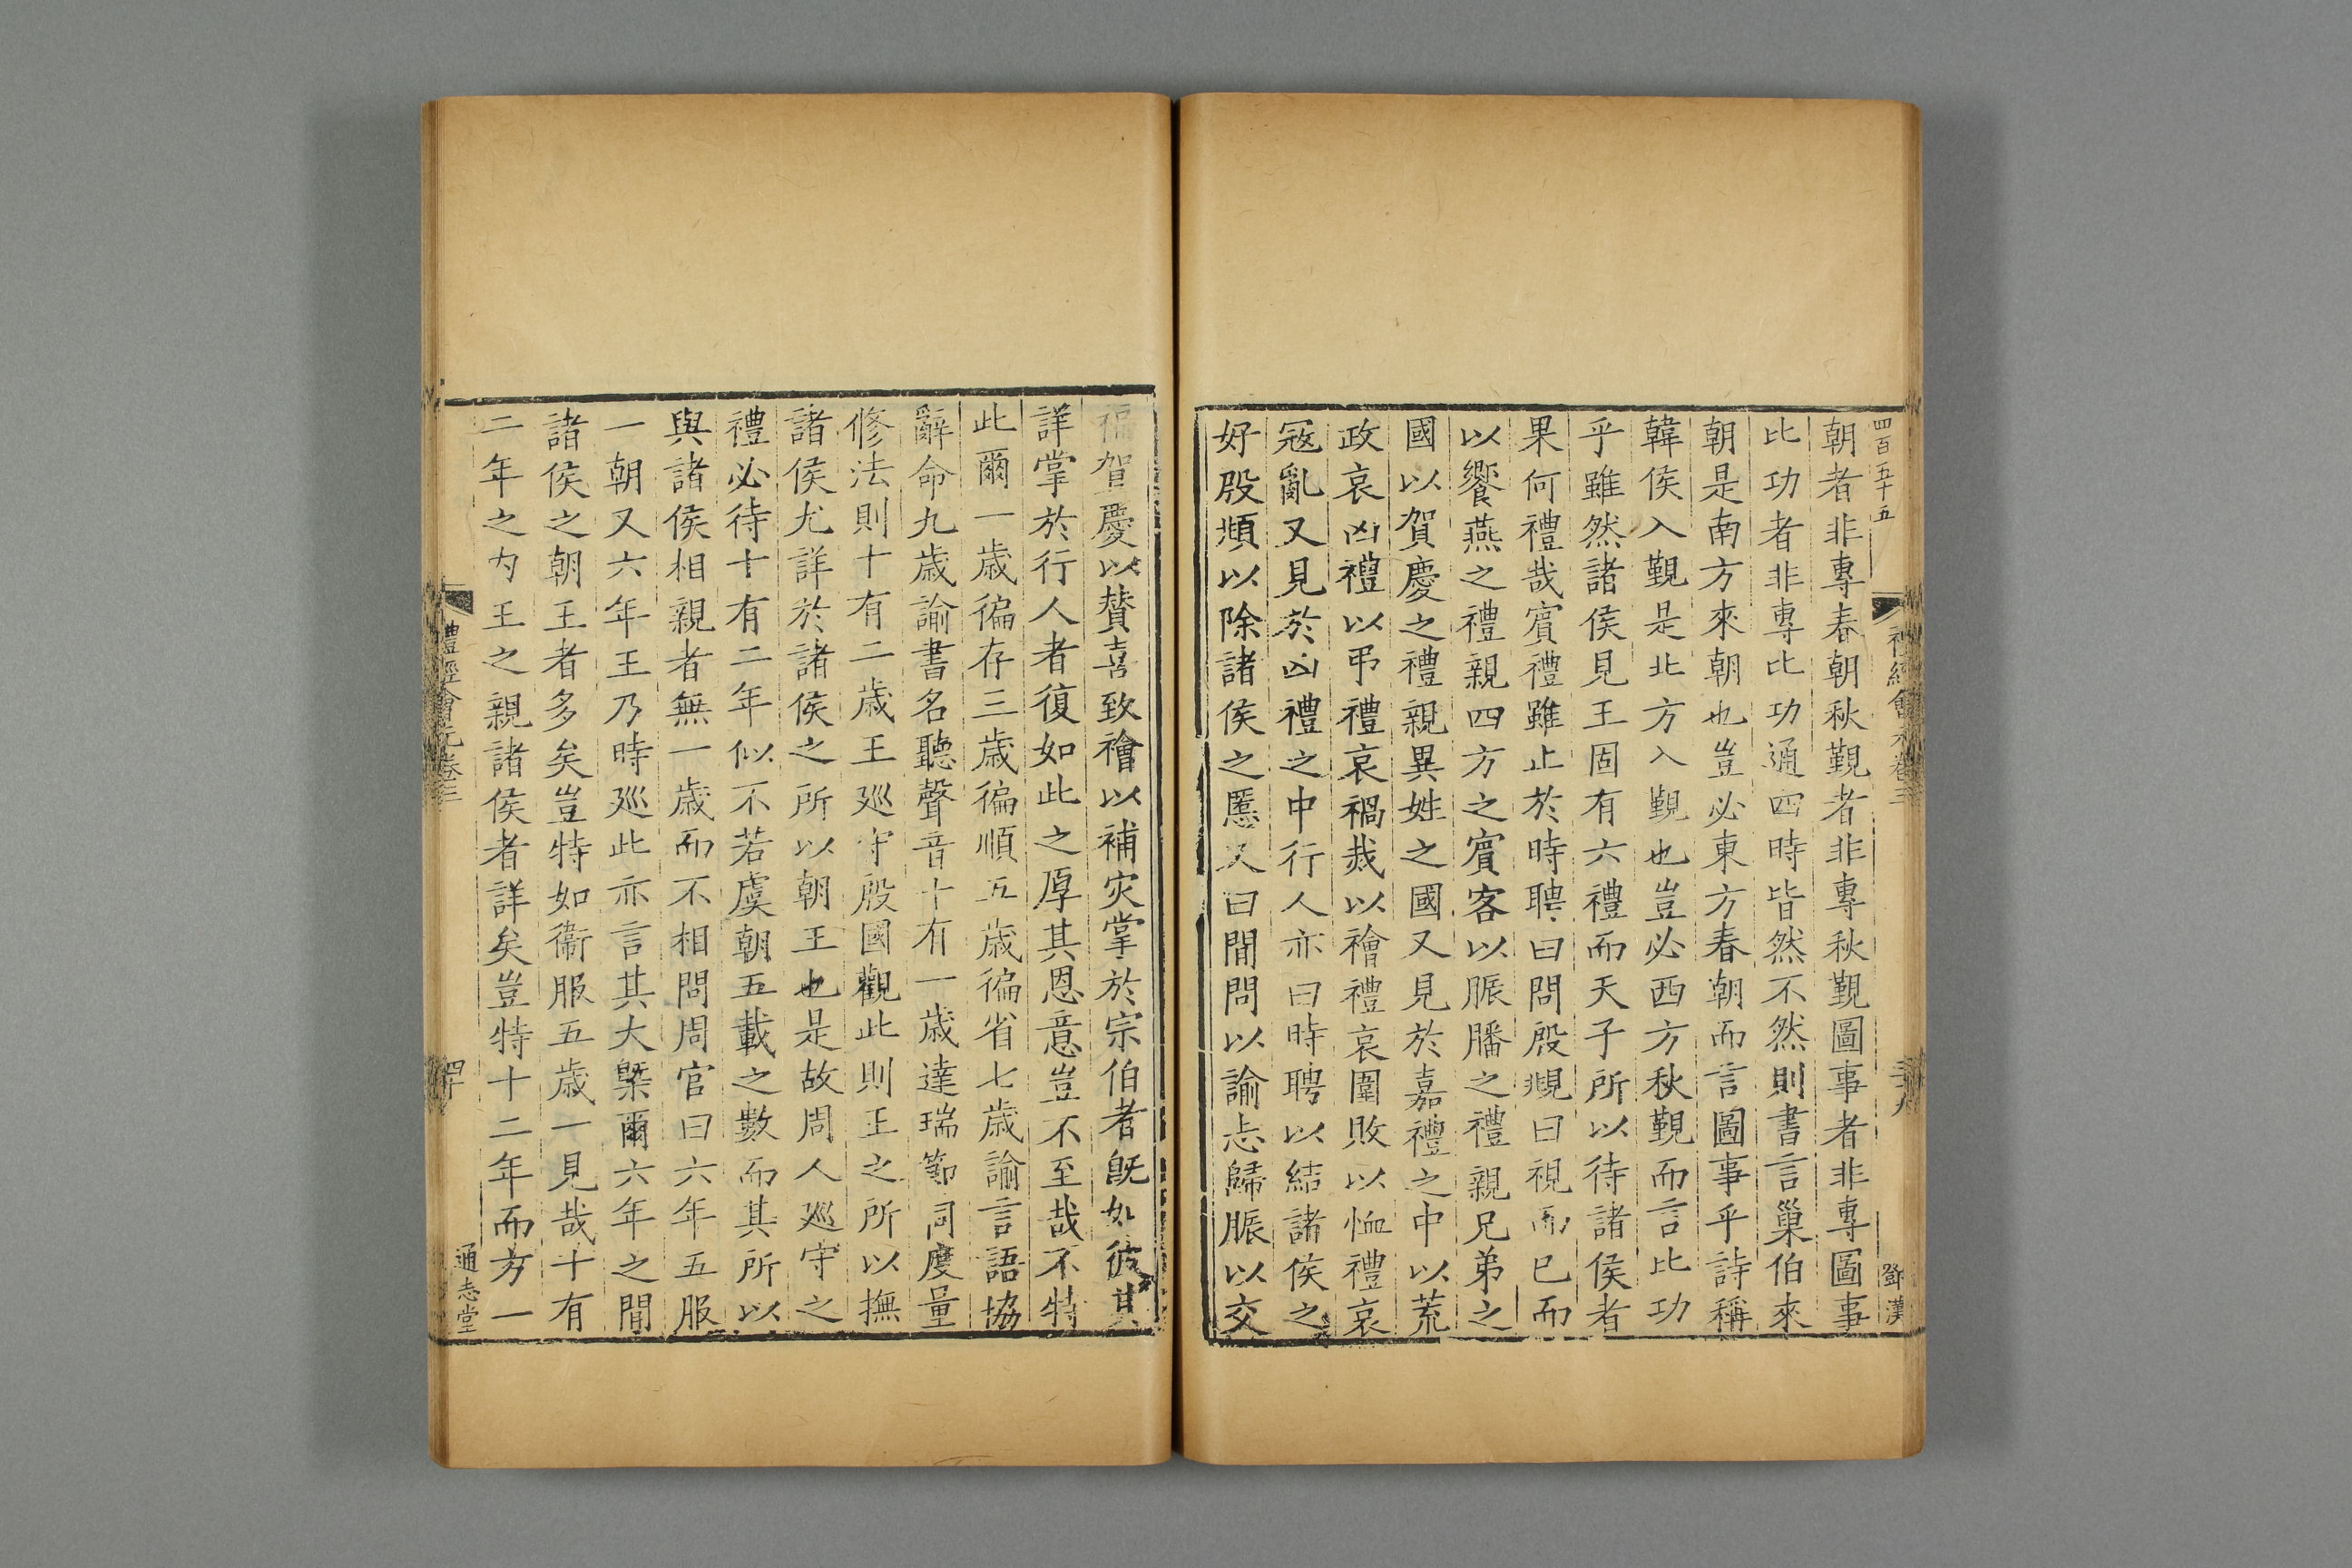 四百五十五
朝者非專春朝秋覲者非專秋覲圖事者非專圖事
比功者非專比功通四時皆然不然則書言巢伯來
朝是南方來朝也豈必東方春朝而言圖事乎詩稱
韓侯入覲是北方入覲也豈必西方秋覲而言比功
乎雖然諸侯見王固有六禮而天子所以待諸侯者
果何禮哉賓禮雖止於時聘曰問殷覜曰視而已而
以饗燕之禮親四方之賓客以脤膰之禮親兄弟之
國以賀慶之禮親異姓之國又見於嘉禮之中以荒
政哀凶禮以弔禮哀禍烖以禬禮哀圍敗以恤禮哀
寇亂又見於凶禮之中行人亦曰時聘以結諸侯之
好殷頫以除諸侯之慝又曰間問以諭志歸脤以交
三十九
鄧漢
福賀慶以贊喜致禬以補灾掌於宗伯者旣如彼其
詳掌於行人者復如此之厚其恩意豈不至哉不特
此爾一歲徧存三歲徧順五歲徧省七歲諭言語協
辭命九歲諭書名聽聲音十有一歲達瑞節同度量
修法則十有二歲王廵守殷國觀此則王之所以撫
諸侯尤詳於諸侯之所以朝王也是故周人廵守之
禮必待十有二年似不若虞朝五載之數而其所以
與諸侯相親者無一歲而不相問周官曰六年五服
一朝又六年王乃時廵此亦言其大槩爾六年之間
諸侯之朝王者多矣豈特如衞服五歲一見哉十有
二年之內王之親諸侯者詳矣豈特十二年而方一
禮經會元卷三
四十
通志堂